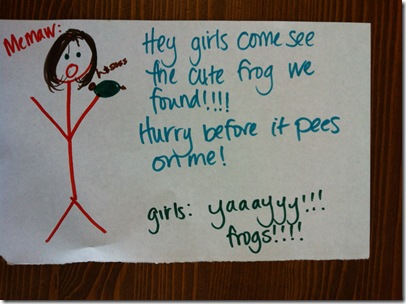 Memaw:
Hey girls come see
the cute frog we
found!!!!
Hurry before it pees
on me!
girls: yaaayyy!!!
frogs!!!!